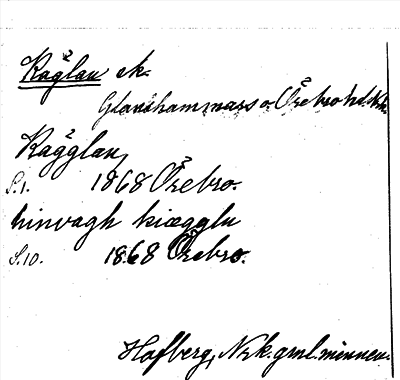 Kåglan sk.
Glanshammars o Örebro hd Nke
Kägglan,
S.1. 1868 Örebro.
hinvagh kiægglu
S.10. 1868 Örebro.
Hofberg, Nrk. gml. minnen.